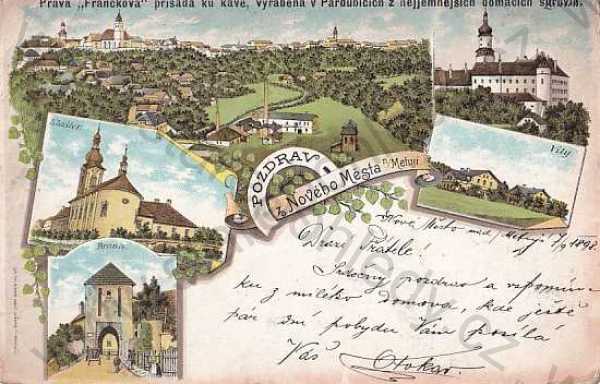 Pravá „Franckova" přísada ku kávě, vyráběná v Pardubicích z nejjemnějších domácích surovin.
Klášter.
Vily
POZDRAV
z Nového Města n/Metují
Brána.
Nové Město nad Metují 1/9 1898
Drazí Přátelé!
Srdečný pozdrav a vzpomín-
ku z milého domova, kde ještě
pár dní pobydu Vám posílá
Váš Otokar